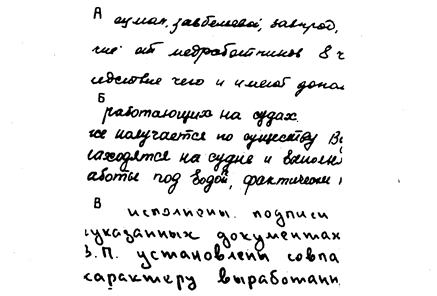 А
оцман, завбелевой, завпрод,
чие от медработников в ч
ледствие чего и имеют допол
Б
работающих на судах.
же получается по существу В
находятся на судне и выполня
аботы под водой, фактически
В
исполнены. подписи
указанных документах
З.П. установлены совпа
характеру выработанн